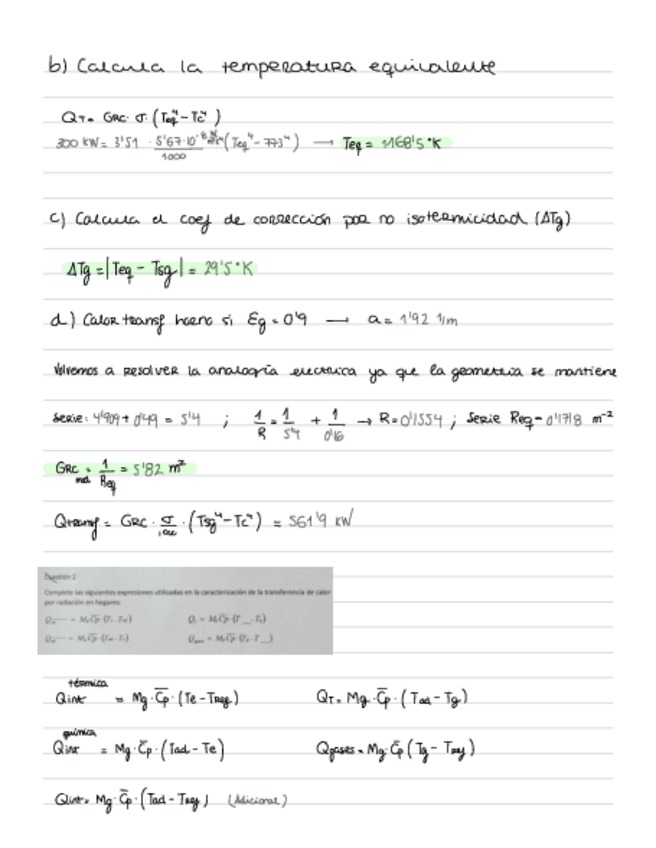 b) Calcula la temperatura equivalente
QT = GRC · σ · (Teq⁴ - Tc⁴)
300 kW = 3'51 · 5'67·10⁻⁸/1000 (Teq⁴ - 773⁴) → Teq = 1168'5 °K
c) Calcula el coef de corrección por no isotermicidad (ΔTg)
ΔTg = |Teq - Tsg| = 29'5 °K
d) Calor transf horno si Eg = 0'9 → a = 1'92 1/m
Volvemos a resolver la analogría electrica ya que la geometria se mantiene
Serie: 4'909 + 0'49 = 5'4 ; 1/R = 1/5'4 + 1/0'16 → R = 0'1554 ; Serie Req = 0'1718 m⁻²
GRC = 1/Req = 5'82 m²
Qtransf = GRC · σ/1000 · (Tsg⁴ - Tc⁴) = 561'9 kW
Cuestión 2
Complete las siguientes expresiones utilizadas en la caracterización de la transferencia de calor
por radiación en hogares:
térmica
Qint = Mg · C̅p · (Te - Tref) QT = Mg · C̅p · (Tad - Tg)
química
Qint = Mg · C̅p · (Tad - Te) Qgases = Mg · C̅p (Tg - Tref)
Qint = Mg · C̅p · (Tad - Tref) (Adicional)